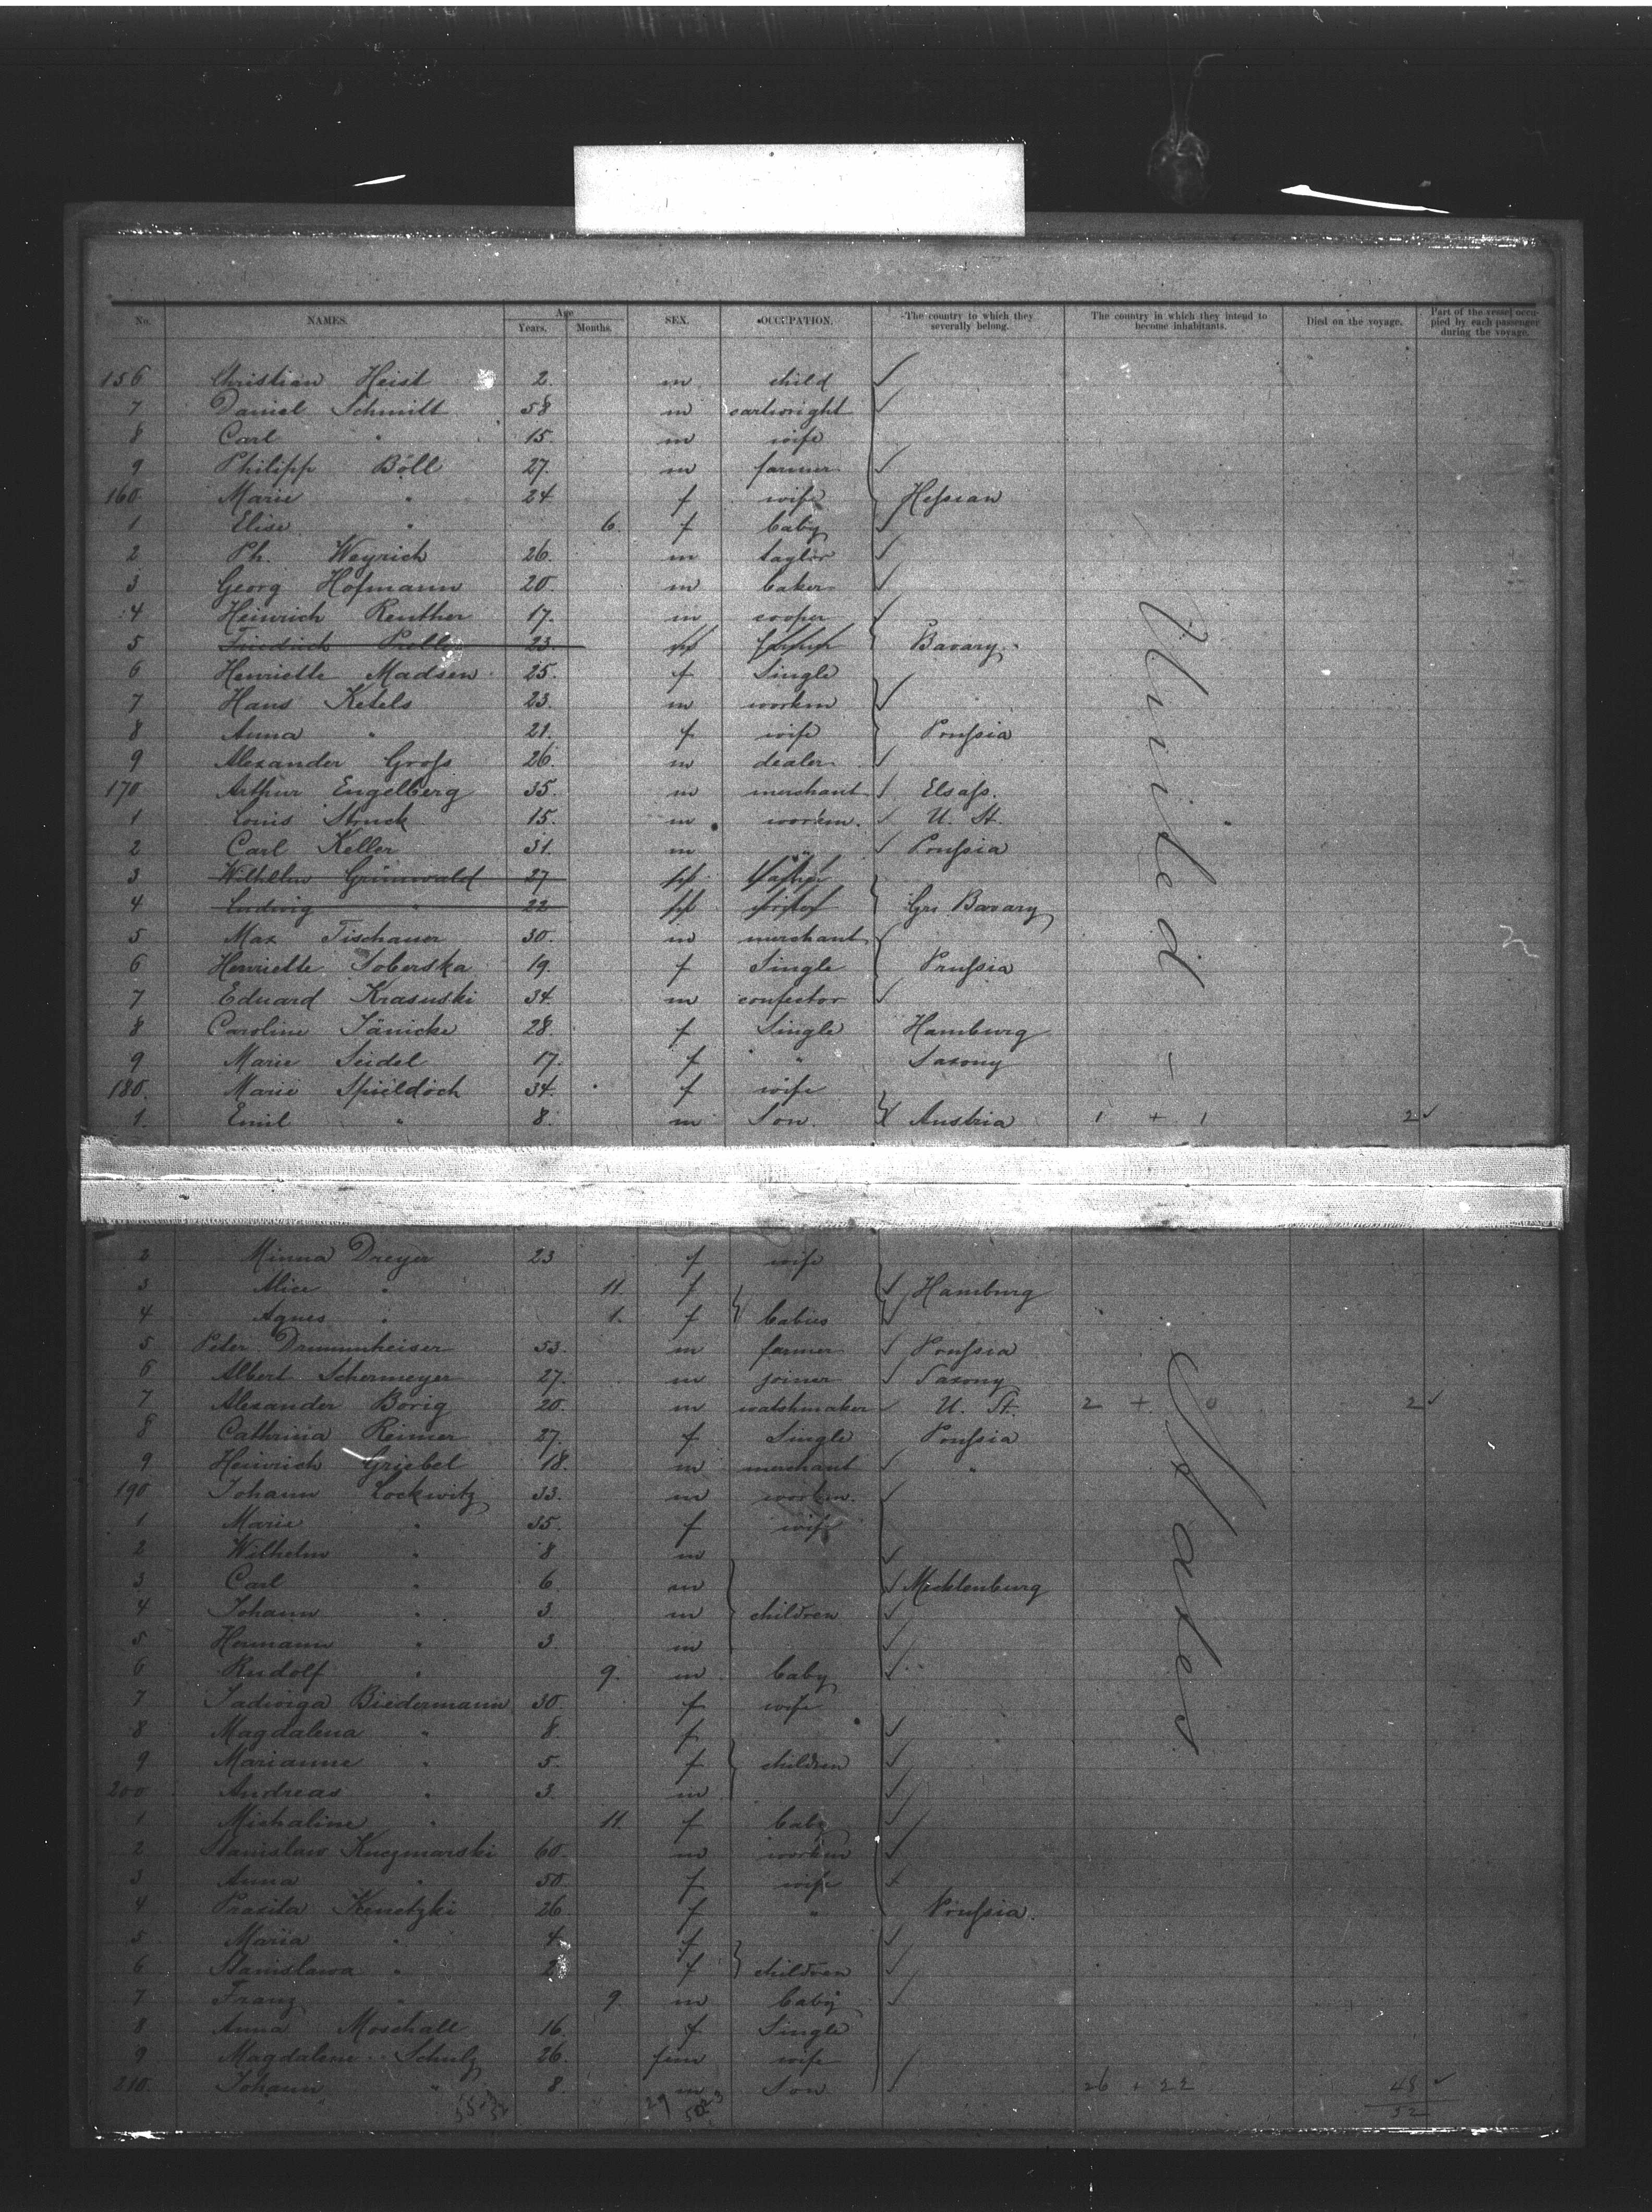 No. NAMES. Age Years. Months. SEX. OCCUPATION. The country to which they severally belong. The country in which they intend to become inhabitants. Died on the voyage. Part of the vessel occupied by each passenger during the voyage.
156 Christian Heist 2. m child
7 Daniel Schmitt 58 m cartwright
8 Carl " 15. m wife
9 Philipp Böll 27. m farmer
160 Marie " 24 f wife Hessian
1 Elise " 6. f baby
2 Ph. Weyrich 26. m taylor
3 Georg Hofmann 20. m baker
4 Heinrich Renther 17. m cooper
5 Friedrich Prelle 23. m farmer Bavary.
6 Henriette Madsen 25. f Single
7 Hans Ketels 23. m workm
8 Anna " 21. f wife Prussia
9 Alexander Gross 26. m dealer
170 Arthur Engelberg 35. m merchant Elsass.
1 Louis Struck 15. m workm. U. St.
2 Carl Keller 31. m " Prussia
3 Wilhelm Grünwald 27 m
4 Ludwig " 22 m Grs Bavary
5 Max Tischauer 30. m merchant
6 Henriette Soberska 19. f Single Prussia
7 Eduard Krasuski 34. m confector
8 Caroline Jänicke 28. f Single Hamburg
9 Marie Seidel 17. f " Saxony
180. Marie Spieldoch 34. f wife
1. Emil " 8. m Son. Austria 1 + 1 2
United
2 Minna Dreyer 23 f wife
3 Alice " 11. f Hamburg
4 Agnes " 1. f babies
5 Peter Drummheiser 53. m farmer Prussia
6 Albert Schermeyer 27. m joiner Saxony
7 Alexander Borig 20. m watshmaker U. St. 2 + 0 2
8 Cathrina Reimer 27. f Single Prussia
9 Heinrich Griebel 18. m merchant "
190 Johann Lockwitz 33. m workm.
1 Marie " 35. f wife
2 Wilhelm " 8 m
3 Carl " 6. m Mecklenburg
4 Johann " 3. m children
5 Hermann " 3. m
6 Rudolf " 9. m baby
7 Jadwiga Biedermann 30. f wife
8 Magdalena " 8. f
9 Marianne " 5. f children
200 Andreas " 3. m
1 Michaline " 11. f baby
2 Stanislaw Kuczmarski 60. m workm
3 Anna " 50. f wife
4 Kenetzki 26 f " Prussia.
5 Maria " 4. f
6 Stanislawa " 2 f children
7 Franz " 9. m baby
8 Anna Moschall 16. f Single
9 Magdalene Schulz 26. fem wife
210. Johann " 8. m Son 26 + 22 48
52
States